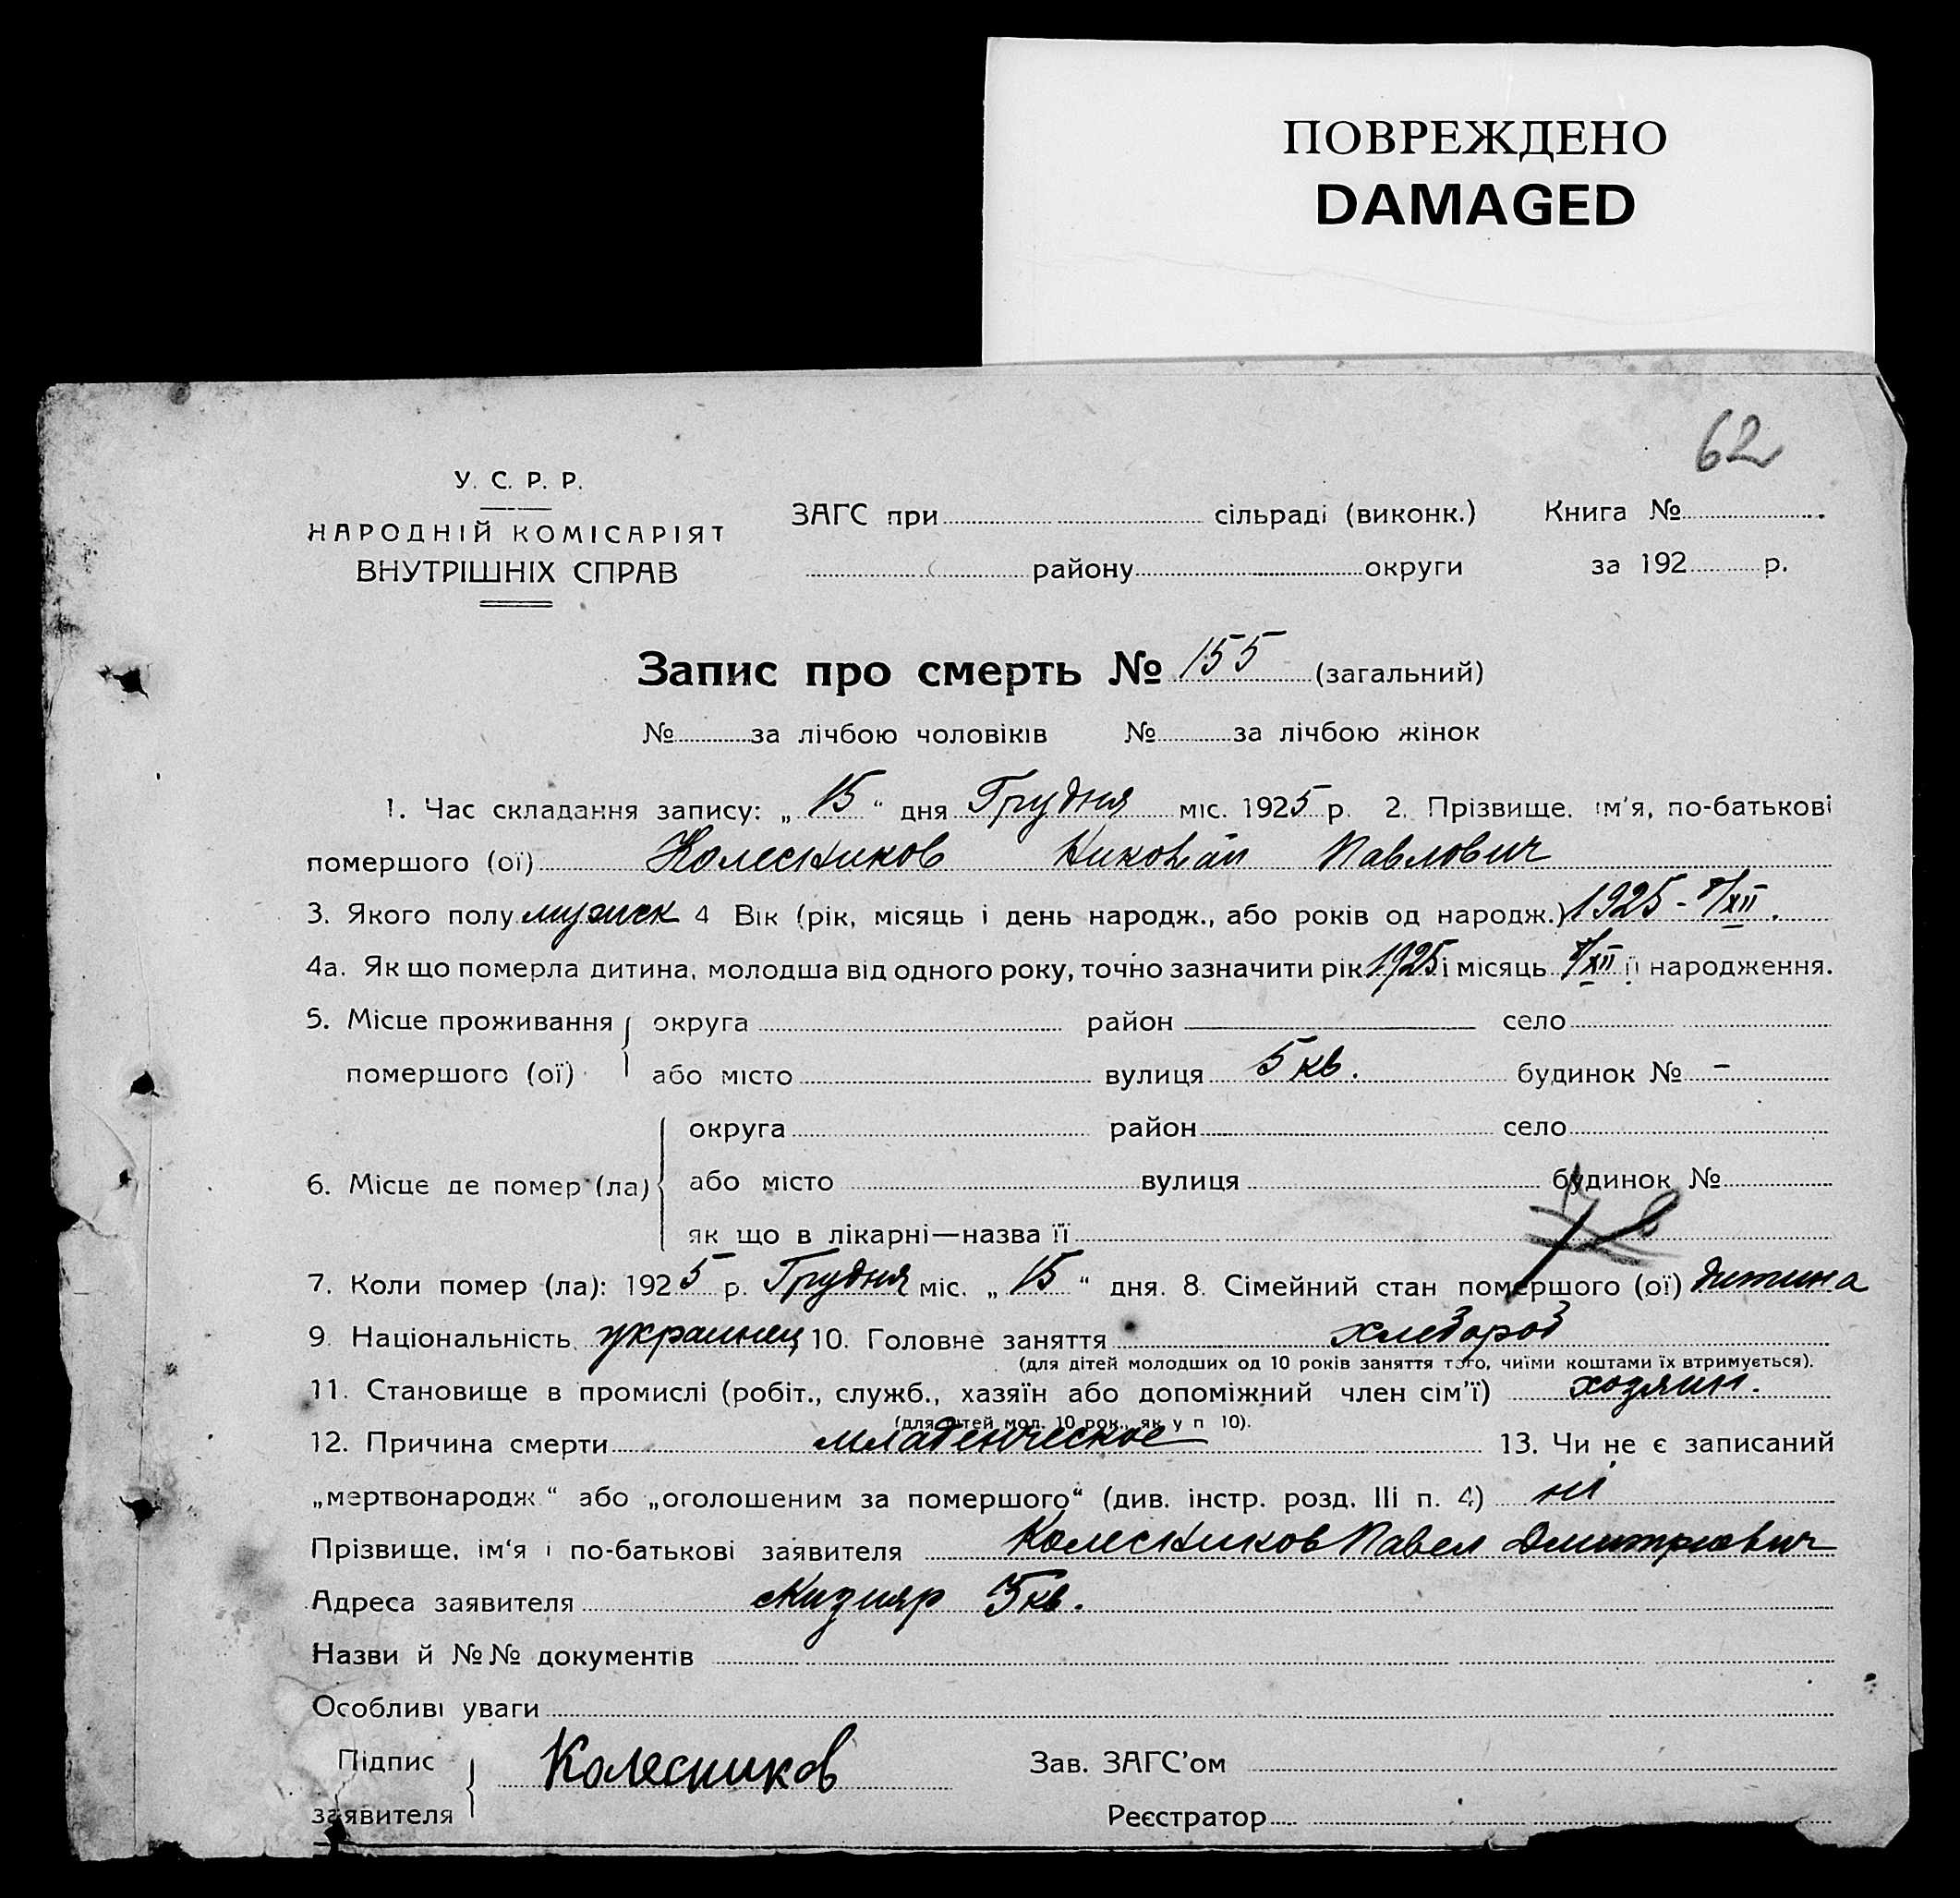 ПОВРЕЖДЕНО
DAMAGED
62
У. С. Р. Р.
НАРОДНІЙ КОМІСАРІЯТ
ВНУТРІШНІХ СПРАВ
ЗАГС при сільраді (виконк.) Книга №
району округи за 192 р.
Запис про смерть № 155 (загальний)
№ за лічбою чоловіків № за лічбою жінок
1. Час складання запису: „ 15 “ дня Грудня міс. 1925 р. 2. Прізвище. ім'я, по-батькові
помершого (ої) Колесников Николай Павлович
3. Якого полу мужск 4 Вік (рік, місяць і день народж., або років од народж.) 1925 - 8/XII.
4а. Як що померла дитина, молодша від одного року, точно зазначити рік 1925 і місяць 8/XII її народження.
5. Місце проживання округа район село
помершого (ої) або місто вулиця 5 кв. будинок № –
округа район село
6. Місце де помер (ла) або місто вулиця будинок №
як що в лікарні—назва її
7. Коли помер (ла): 1925 р. Грудня міс. „ 15 “ дня. 8. Сімейний стан помершого (ої) дитина
9. Національність украинец 10. Головне заняття хлебороб
(для дітей молодших од 10 років заняття того, чиїми коштами їх втримується).
11. Становище в промислі (робіт., служб., хазяїн або допоміжний член сім'ї) хозяин.
(для дітей мол. 10 рок., як у п 10).
12. Причина смерти младенческое 13. Чи не є записаний
„мертвонародж“ або „оголошеним за помершого“ (див. інстр. розд. III п. 4) ні
Прізвище, ім'я і по-батькові заявителя Колесников Павел Дмитриевич
Адреса заявителя Кизияр 5 кв.
Назви й №№ документів
Особливі уваги
Підпис Колесников Зав. ЗАГС'ом
заявителя Реєстратор